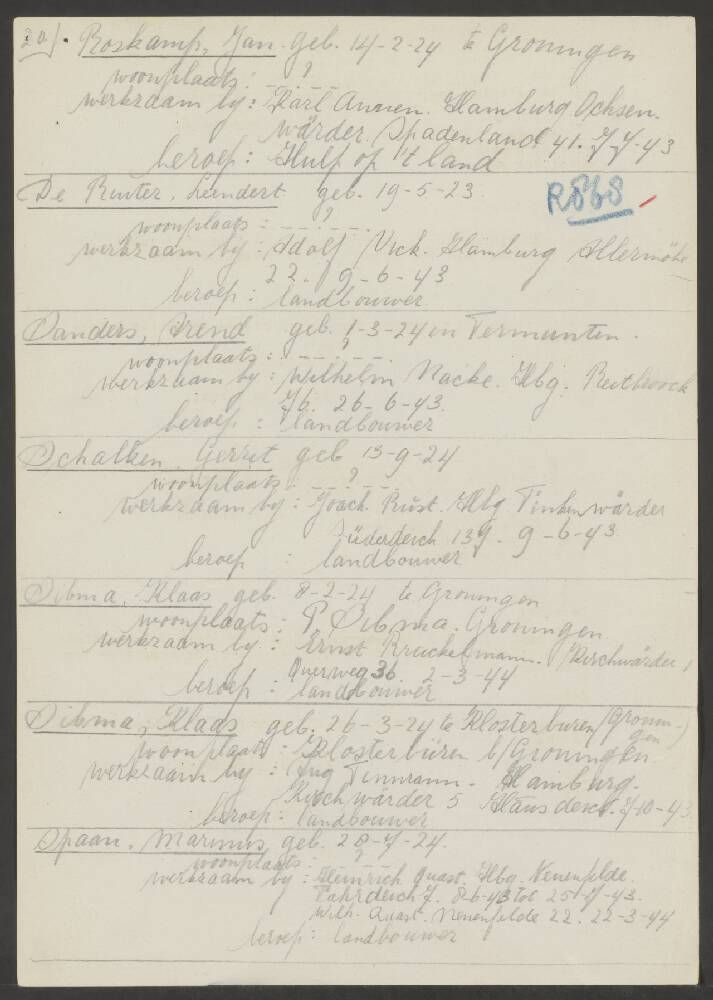 20). Roskamp, Jan. geb. 14-2-24 te Groningen
woonplaats: ?
werkzaam by: Karl Annen. Hamburg Ochsen-
wärder. Spadenland 41. 7-7-43
beroep: Hulp op 't land
De Ruiter, Leendert geb. 19-5-23
R868
woonplaats: ?
werkzaam by: Adolf Vick. Hamburg Allermöhe
22. 9-6-43
beroep: landbouwer
Sanders, Arend geb. 1-3-24 in Termunten.
woonplaats: ?
werkzaam by: Wilhelm Nacke. Hbg. Reitbrook
76. 26-6-43.
beroep: landbouwer
Schalken, Gerret geb 13-9-24
woonplaats: ?
werkzaam by: Joach. Rüst. Hbg Finkenwärder
Süderdeich 139. 9-6-43
beroep: landbouwer
Sibma, Klaas geb. 8-2-24 te Groningen
woonplaats: P Sibma. Groningen
werkzaam by: Ernst Kruckelmann. Kirchwärder,
Querweg 36. 2-3-44
beroep: landbouwer
Sibma, Klaas geb. 26-3-24 te Klosterburen (Gronin-
gen)
woonplaats: Klosterburen b/Groningen
werkzaam by: Timmann. Hamburg.
Kirchwärder 5 Hausdeich. 7-10-43
beroep: landbouwer
Spaan, Marinus, geb. 28-7-24.
woonplaats: ?
werkzaam by: Heinrich Quast. Hbg. Neuenfelde.
Fahrdeich 7. 8-6-43 tot 25-7-43.
Wilh. Quast. Neuenfelde 22. 22-3-44
beroep: landbouwer